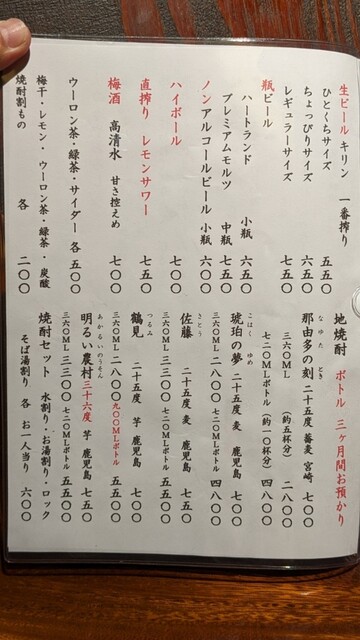 生ビール キリン 一番搾り
ひとくちサイズ 五五〇
ちょっぴりサイズ 六五〇
レギュラーサイズ 七五〇
瓶ビール
ハートランド 小瓶 六五〇
プレミアムモルツ 中瓶 七五〇
ノンアルコールビール 小瓶 六〇〇
ハイボール 七〇〇
直搾り レモンサワー 七五〇
梅酒 高清水 甘さ控えめ 七〇〇
ウーロン茶・緑茶・サイダー 各 五〇〇
梅干・レモン・ウーロン茶・緑茶・炭酸
焼酎割もの 各 二〇〇
地焼酎 ボトル 三ヶ月間お預かり
なゆた とき
那由多の刻 二十五度 蕎麦 宮崎 七〇〇
三六〇ML (約五杯分) 二八〇〇
七二〇MLボトル (約一〇杯分) 四八〇〇
こはく ゆめ
琥珀の夢 二十五度 麦 鹿児島 七〇〇
三六〇ML 二五〇〇 七二〇MLボトル 四八〇〇
さとう
佐藤 二十五度 麦 鹿児島 七五〇
三六〇ML 三三〇〇 七二〇MLボトル 五五〇〇
つるみ
鶴見 二十五度 芋 鹿児島 七〇〇
三六〇ML 二八〇〇 九〇〇MLボトル 五五〇〇
あかるいのうそん
明るい農村 三十六度 芋 鹿児島 七五〇
三六〇ML 三三〇〇 七二〇MLボトル 五五〇〇
焼酎セット 水割り・お湯割り・ロック
そば湯割り 各 お一人当り 六〇〇